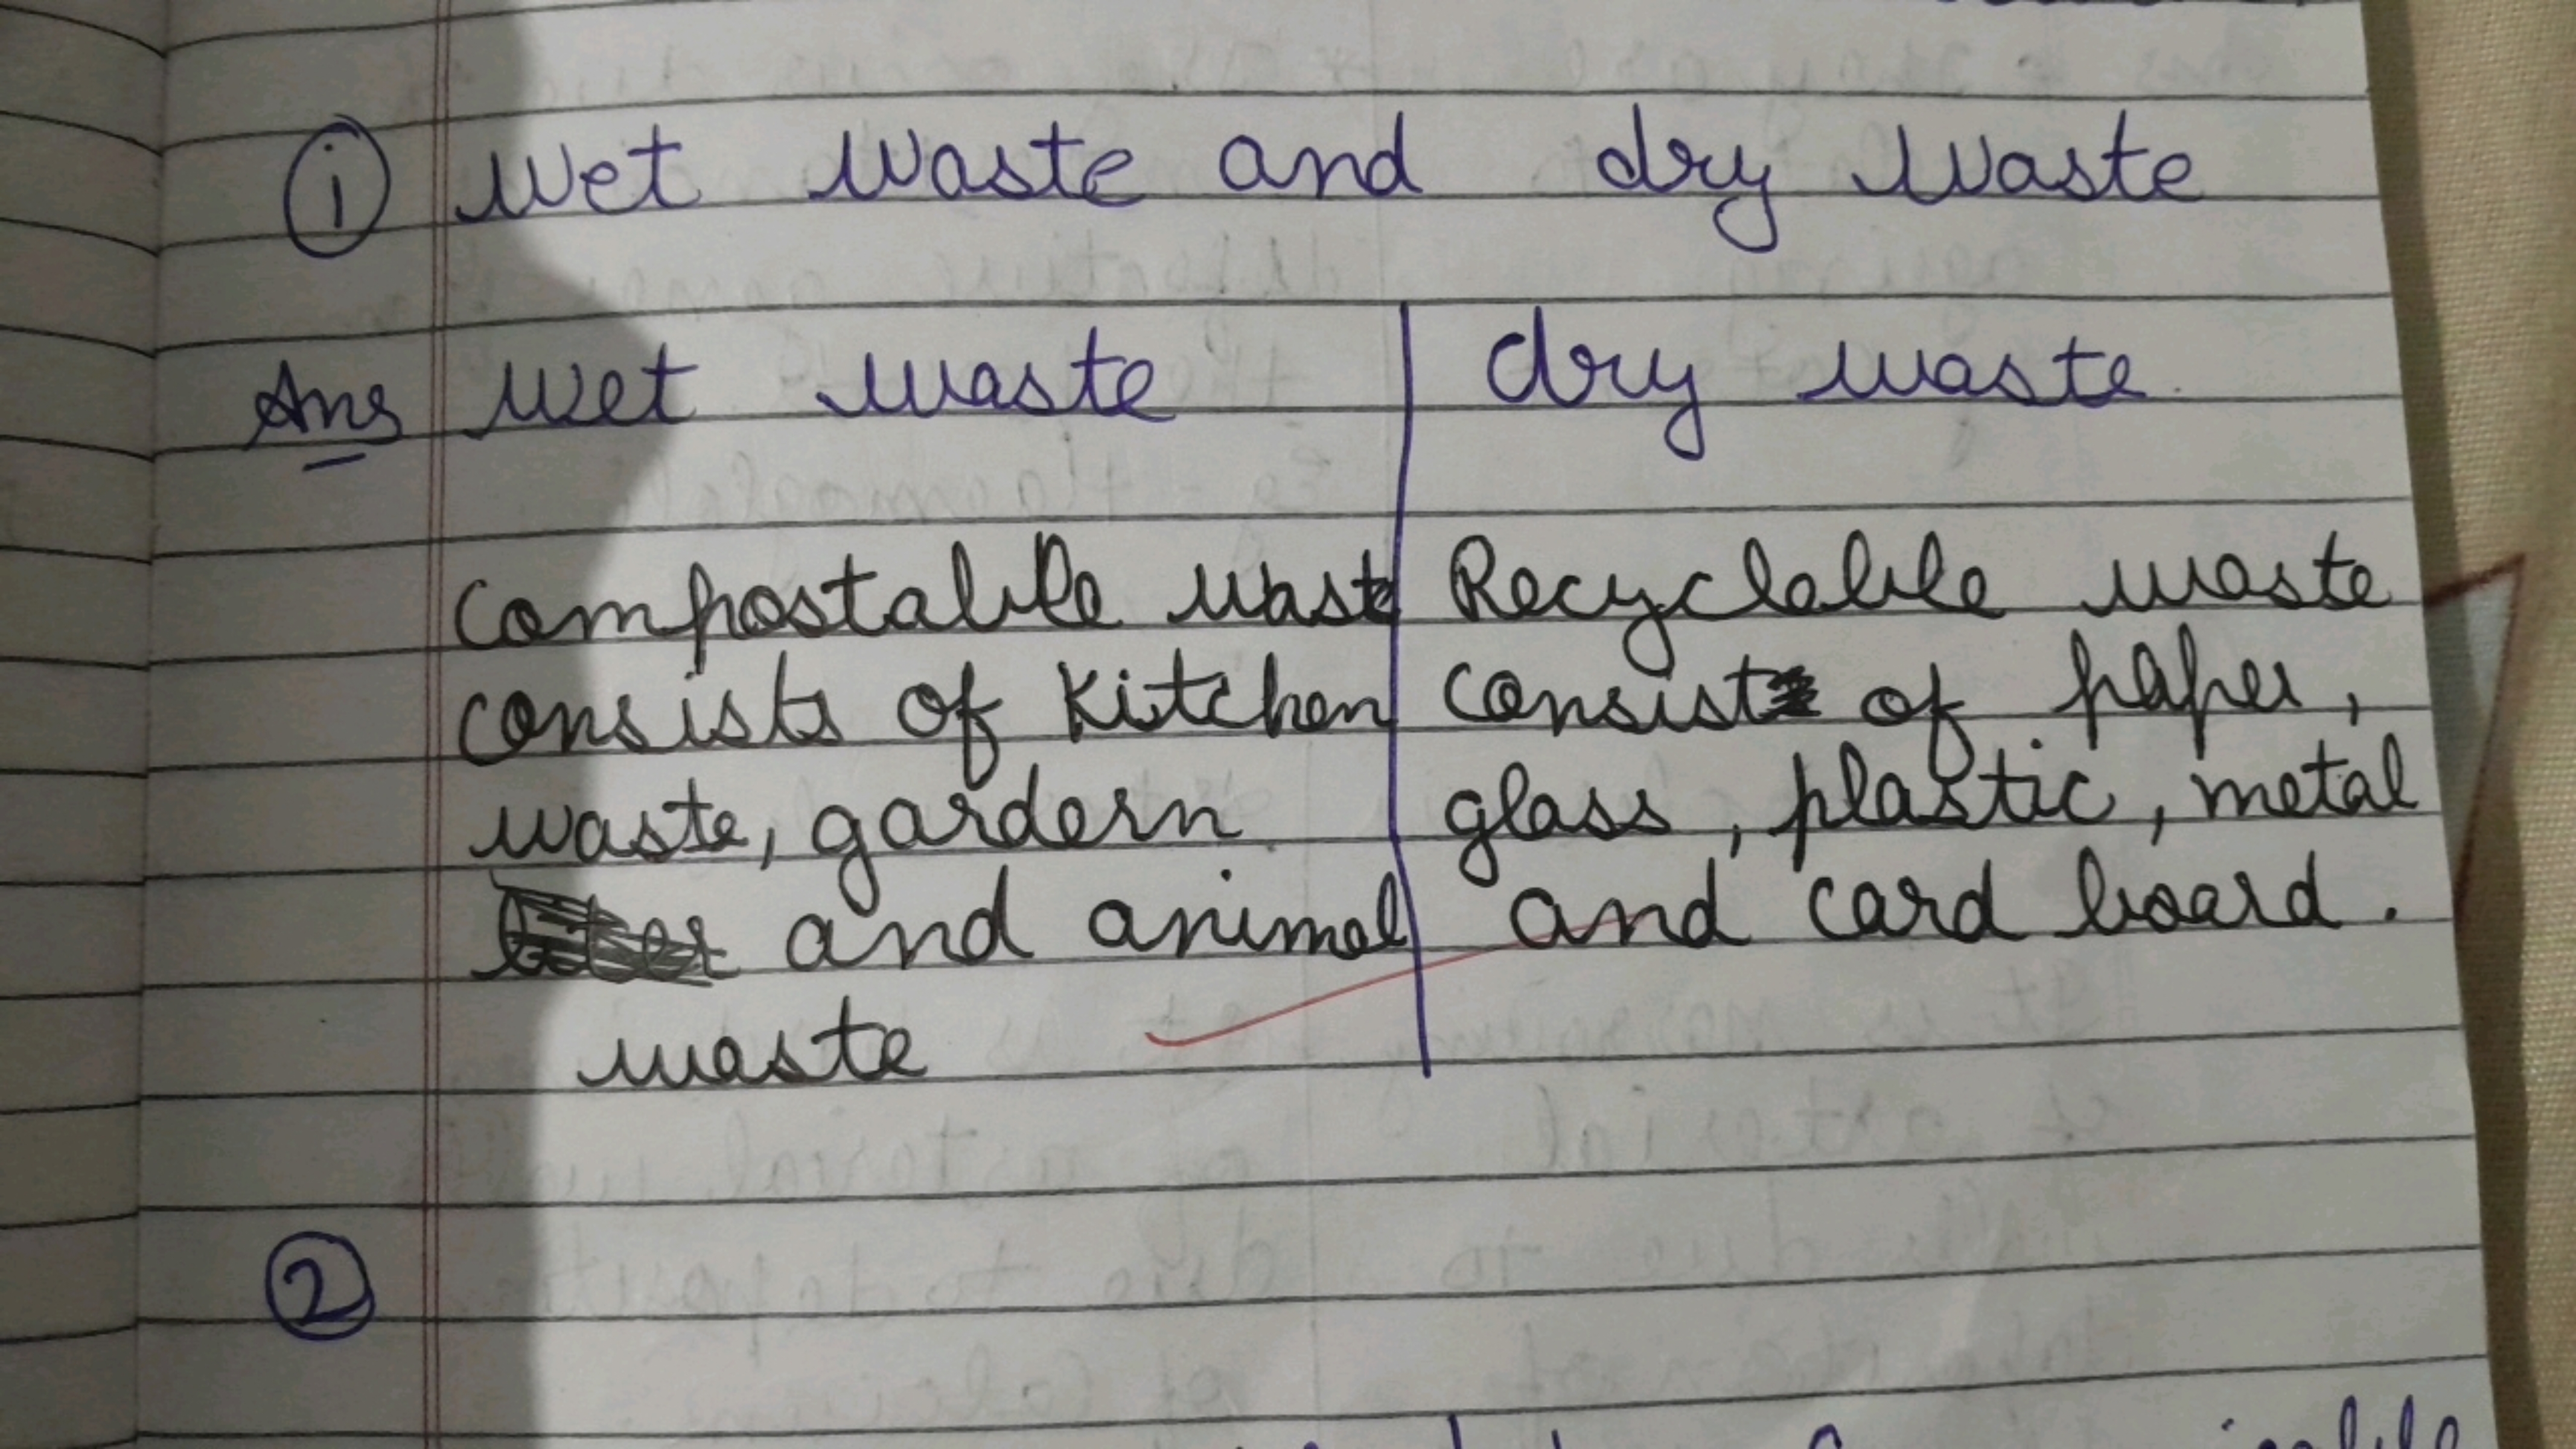 i wet waste and dry waste
Ans wet waste | dry waste
Compostable waste | Recyclable waste
consists of kitchen | consist of paper,
waste, gardern | glass, plastic, metal
and animal | and card board.
waste
2